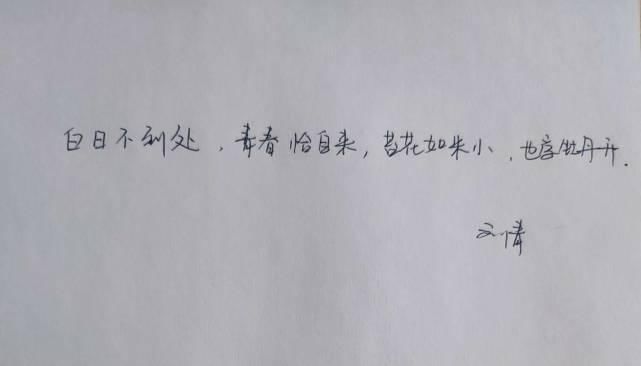 白日不到处，青春恰自来，苔花如米小，也学牡丹开.